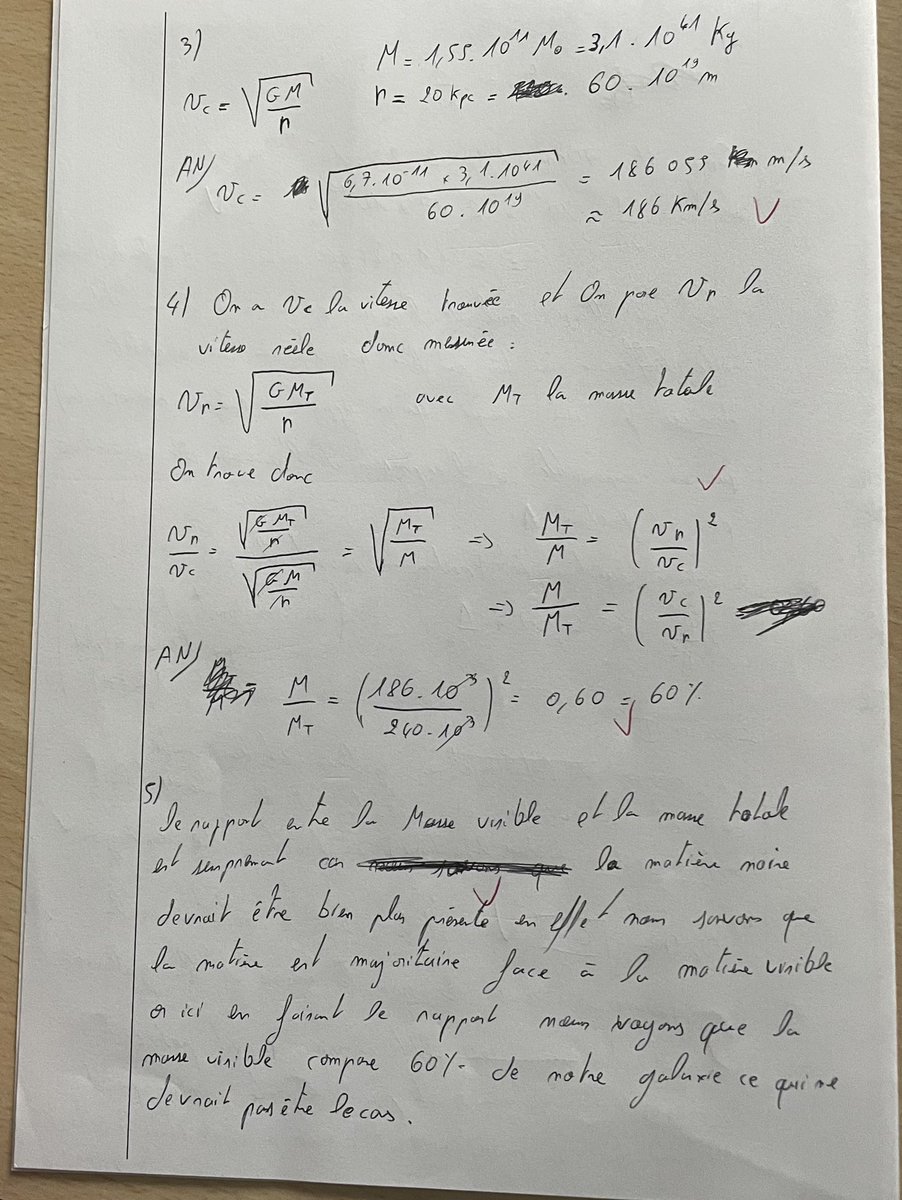 3)
M = 1,55. 10^11 M₀ = 3,1 . 10^41 Kg
v_c = √(GM/r)
r = 20 kpc = 60 . 10^19 m
AN/
v_c = √((6,7.10^-11 × 3,1.10^41)/(60 . 10^19)) = 186 055 m/s
≈ 186 Km/s
4) On a v_c la vitesse trouvée et On pose v_r la
vitesse réèle donc mesurée :
v_r = √(G M_T/r) avec M_T la masse totale
On trouve donc
v_r/v_c = √(G M_T/r)/√(G M/r) = √(M_T/M) => M_T/M = (v_r/v_c)^2
=> M/M_T = (v_c/v_r)^2
AN/
M/M_T = (186 . 10^3/240 . 10^3)^2 = 0,60 = 60 %
5)
le rapport entre la Masse visible et la masse totale
est surprenant car la matière noire
devrait être bien plus présente en effet nous savons que
la matière est majoritaire face à la matière visible
or ici en faisant le rapport nous voyons que la
masse visible compose 60% de notre galaxie ce qui ne
devrait pas être le cas.